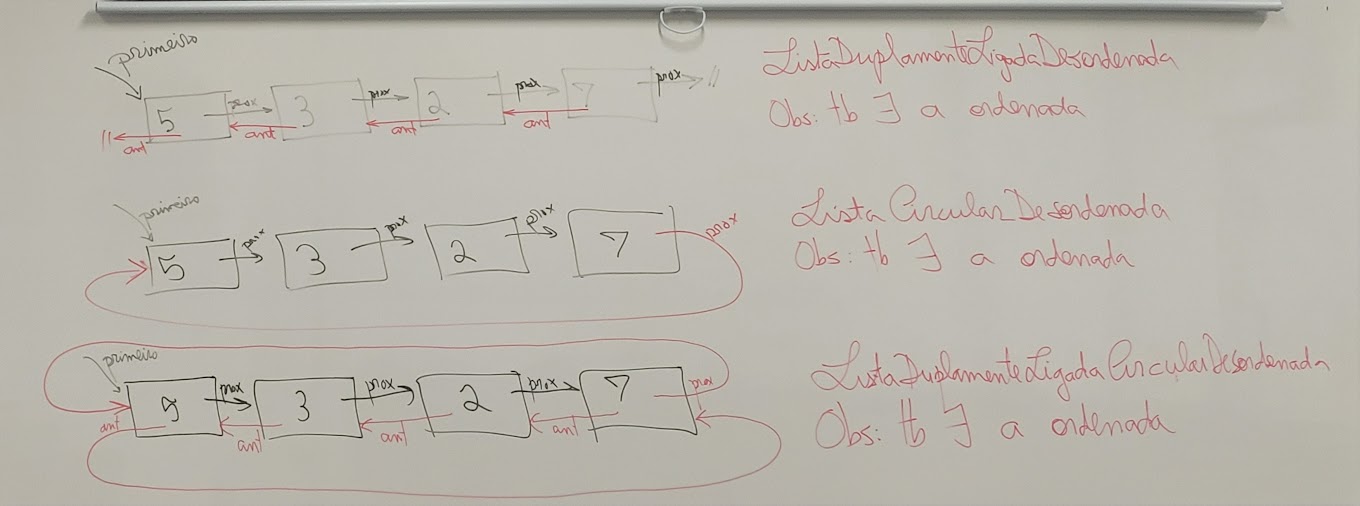 primeiro
5 prox 3 prox 2 prox 7 prox //
// ant ant ant ant
ListaDuplamenteLigadaDesordenada
Obs: tb ∃ a ordenada
primeiro
5 prox 3 prox 2 prox 7 prox
ListaCircularDesordenada
Obs: tb ∃ a ordenada
primeiro
5 prox 3 prox 2 prox 7 prox
ant ant ant ant
ListaDuplamenteLigadaCircularDesordenada
Obs: tb ∃ a ordenada